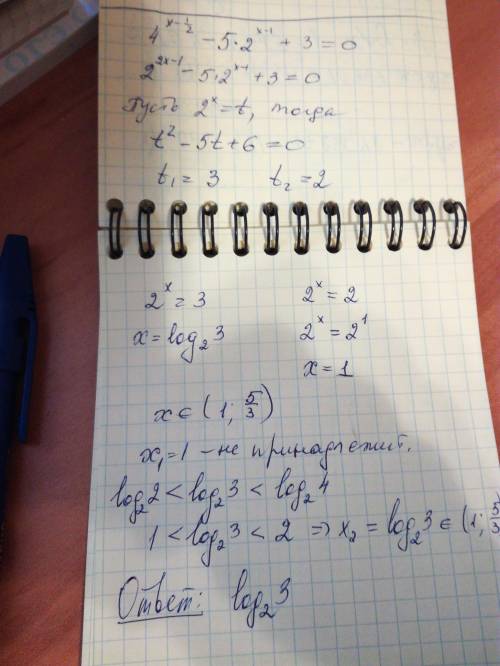 4^{x-\frac{1}{2}} - 5·2^{x-1} + 3 = 0
2^{2x-1} - 5·2^{x-1} + 3 = 0
Пусть 2^x = t, тогда
t^2 - 5t + 6 = 0
t_1 = 3 t_2 = 2
2^x = 3 2^x = 2
x = log_2 3 2^x = 2^1
x = 1
x ∈ (1; \frac{5}{3})
x_1 = 1 - не принадлежит.
log_2 2 < log_2 3 < log_2 4
1 < log_2 3 < 2 ⇒ x_2 = log_2 3 ∈ (1; \frac{5}{3}
Ответ: log_2 3